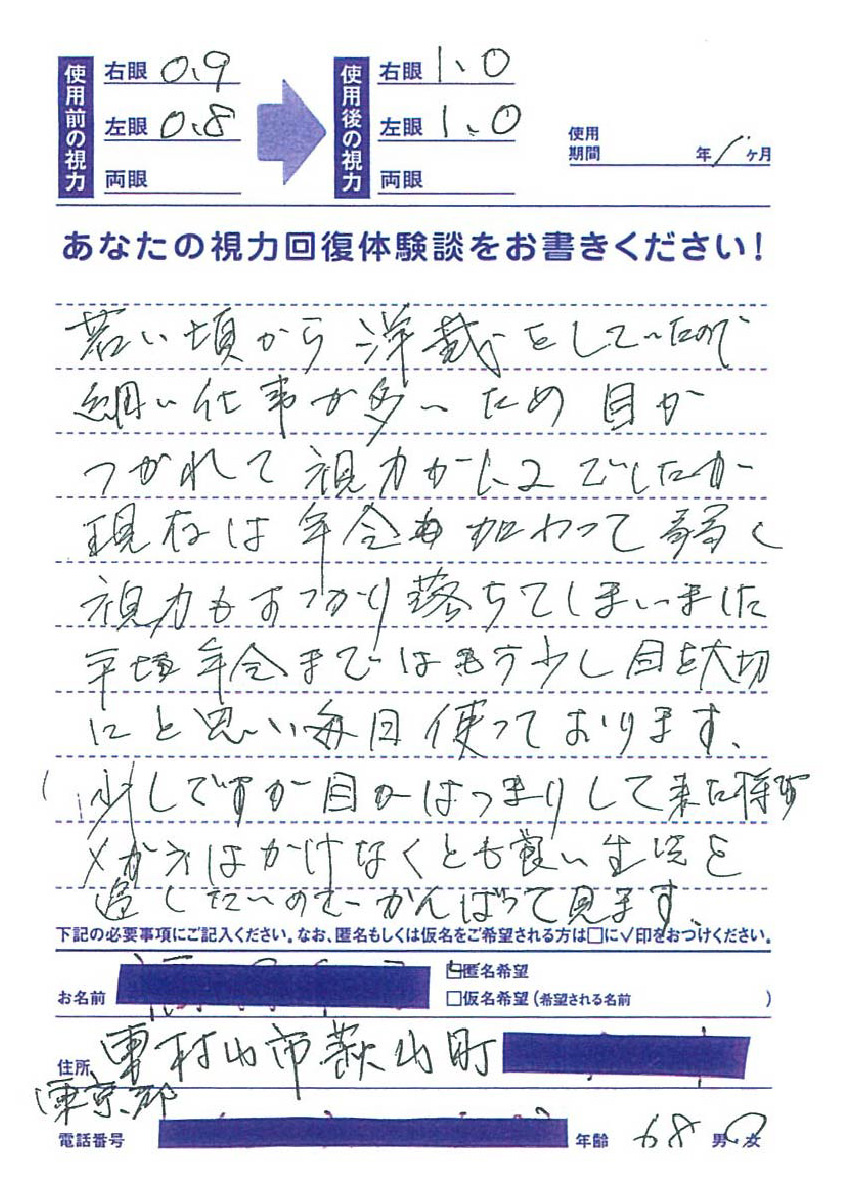 使用前の視力
右眼 0.9
左眼 0.8
両眼
使用後の視力
右眼 1.0
左眼 1.0
両眼
使用期間 年 1ヶ月
あなたの視力回復体験談をお書きください！
若い頃から洋裁をしていたので
細い仕事が多いため目が
つかれて視力が1.2でしたが
現在は年令も加わって弱く
視力もすっかり落ちてしまいました
平均年令まではもう少し目を大切
にと思い毎日使っております、
少しですが目がはっきりして来た様で
メガネはかけなくとも良い生活を
過したいのでがんばって見ます、
下記の必要事項にご記入ください。なお、匿名もしくは仮名をご希望される方は□に√印をおつけください。
お名前
匿名希望
□仮名希望（希望される名前 ）
住所 東村山市萩山町
東京都
電話番号
年齢 68 男・女